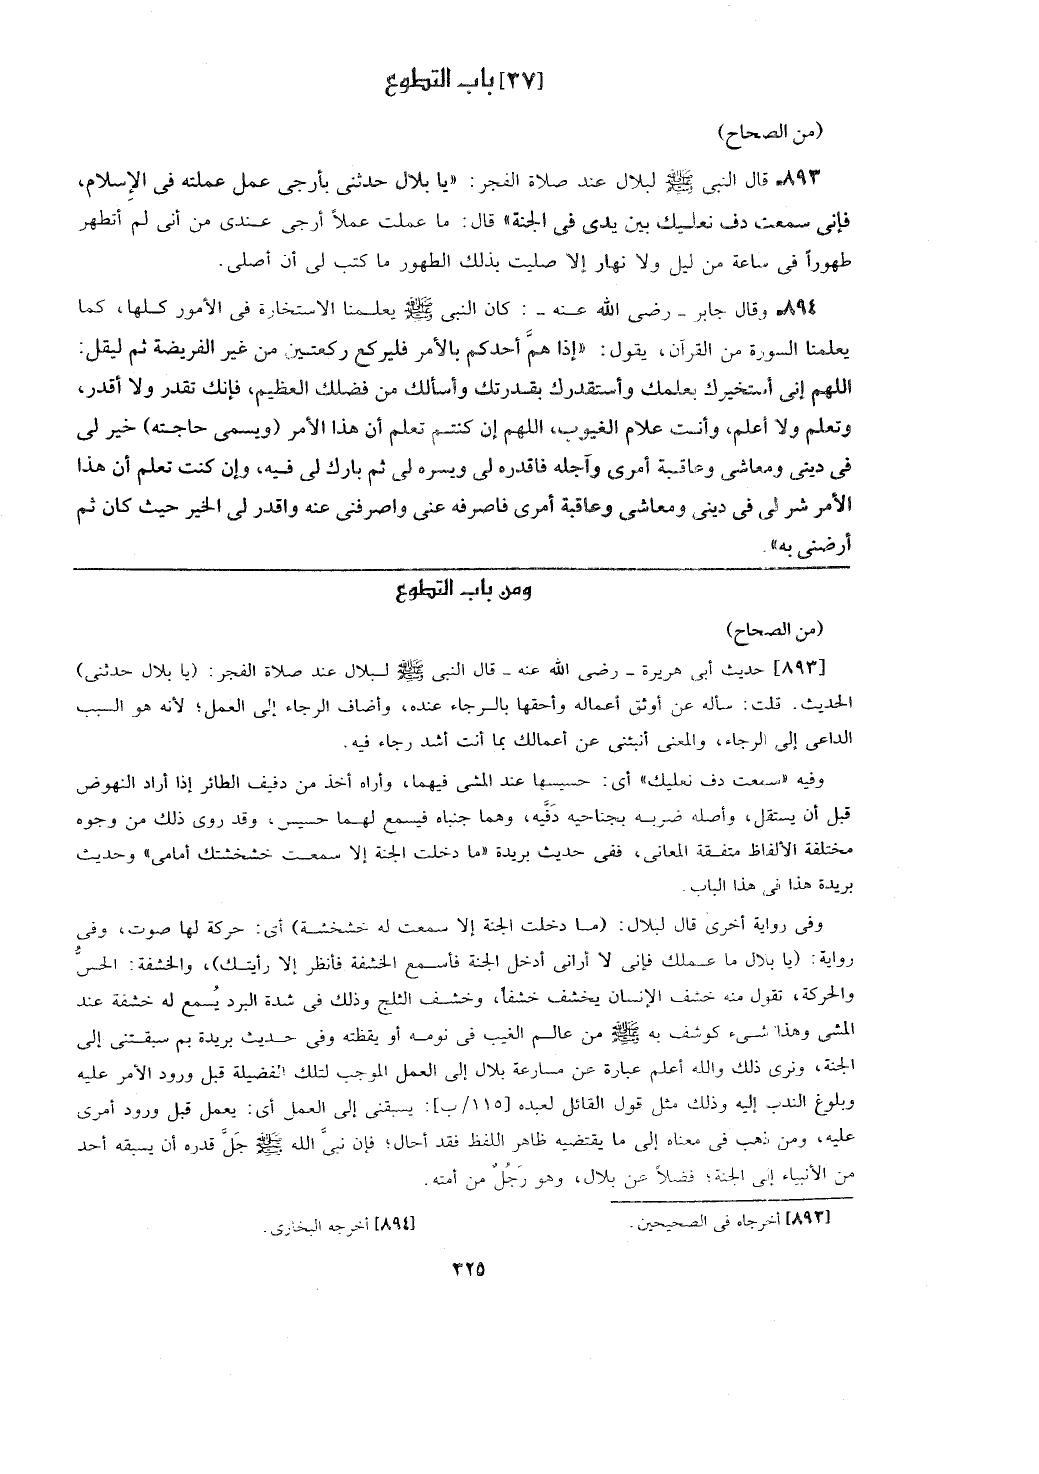 [٣٧] باب التطوع
(من الصحاح)
٨٩٣- قال النبى ﷺ لبلال عند صلاة الفجر: «يا بلال حدثنى بأرجى عمل عملته فى الإسلام،
فإنى سمعت دف نعليك بين يدى فى الجنة» قال: ما عملت عملاً أرجى عندى من أنى لم أتطهر
طهوراً فى ساعة من ليل ولا نهار إلا صليت بذلك الطهور ما كتب لى أن أصلى.
٨٩٤- وقال جابر - رضى الله عنه - : كان النبى ﷺ يعلمنا الاستخارة فى الأمور كلها، كما
يعلمنا السورة من القرآن، يقول: «إذا همَّ أحدكم بالأمر فليركع ركعتين من غير الفريضة ثم ليقل:
اللهم إنى أستخيرك بعلمك وأستقدرك بقدرتك وأسألك من فضلك العظيم، فإنك تقدر ولا أقدر،
وتعلم ولا أعلم، وأنت علام الغيوب، اللهم إن كنتم تعلم أن هذا الأمر (ويسمى حاجته) خير لى
فى دينى ومعاشى وعاقبة أمرى وآجله فاقدره لى ويسره لى ثم بارك لى فيه، وإن كنت تعلم أن هذا
الأمر شر لى فى دينى ومعاشى وعاقبة أمرى فاصرفه عنى واصرفنى عنه واقدر لى الخير حيث كان ثم
أرضنى به».
ومن باب التطوع
(من الصحاح)
[٨٩٣] حديث أبى هريرة - رضى الله عنه - قال النبى ﷺ لبلال عند صلاة الفجر: (يا بلال حدثنى)
الحديث. قلت: سأله عن أوثق أعماله وأحقها بالرجاء عنده، وأضاف الرجاء إلى العمل؛ لأنه هو السبب
الداعى إلى الرجاء، والمعنى أنبئنى عن أعمالك بما أنت أشد رجاء فيه.
وفيه «سمعت دف نعليك» أى: حسيسها عند المشى فيهما، وأراه أخذ من دفيف الطائر إذا أراد النهوض
قبل أن يستقل، وأصله ضربه بجناحيه دَفَّيه، وهما جنباه فيسمع لهما حسيس، وقد روى ذلك من وجوه
مختلفة الألفاظ متفقة المعانى، ففى حديث بريدة «ما دخلت الجنة إلا سمعت خشخشتك أمامى» وحديث
بريدة هذا فى هذا الباب.
وفى رواية أخرى قال لبلال: (ما دخلت الجنة إلا سمعت له خشخشة) أى: حركة لها صوت، وفى
رواية: (يا بلال ما عملك فإنى لا أرانى أدخل الجنة فأسمع الخشفة فأنظر إلا رأيتك)، والخشفة: الحسُّ
والحركة، تقول منه خشف الإنسان يخشف خشفاً، وخشف الثلج وذلك فى شدة البرد يُسمع له خشفة عند
المشى وهذا شىء كوشف به ﷺ من عالم الغيب فى نومه أو يقظته وفى حديث بريدة بم سبقتنى إلى
الجنة، ونرى ذلك والله أعلم عبارة عن مسارعة بلال إلى العمل الموجب لتلك الفضيلة قبل ورود الأمر عليه
وبلوغ الندب إليه وذلك مثل قول القائل لعبده [١١٥/ب]: يسبقنى إلى العمل أى: يعمل قبل ورود أمرى
عليه، ومن ذهب فى معناه إلى ما يقتضيه ظاهر اللفظ فقد أحال؛ فإن نبىَّ الله ﷺ جَلَّ قدره أن يسبقه أحد
من الأنبياء إلى الجنة؛ فضلاً عن بلال، وهو رَجُلٌ من أمته.
[٨٩٣] أخرجاه فى الصحيحين.
[٨٩٤] أخرجه البخارى.
٣٢٥